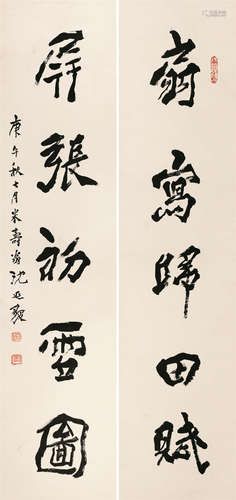 扇寫歸田賦
屏張初雪圖
庚午秋七月米壽翁沈延毅